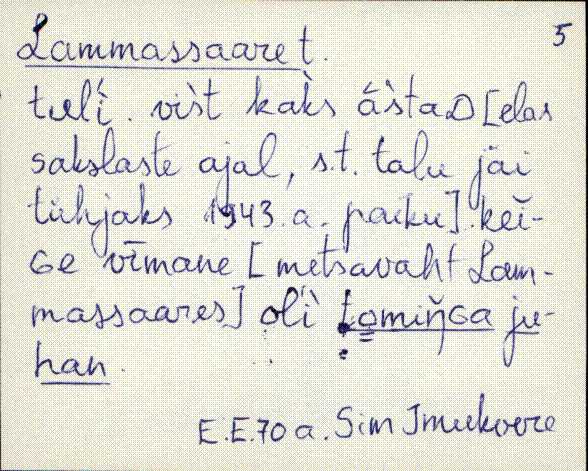 5
Lammassaare t.
tul̀i. vis̀t kaks ás̀taD [elas
sakslaste ajal, s.t. talu jäi
tühjaks 1943.a. paiku]. kei-
Ge vīmane [metsavaht Lam-
massaares] ol̀i tomiŋ̆Ga ju-
han.
E.E. 70 a. Sim Imukvere